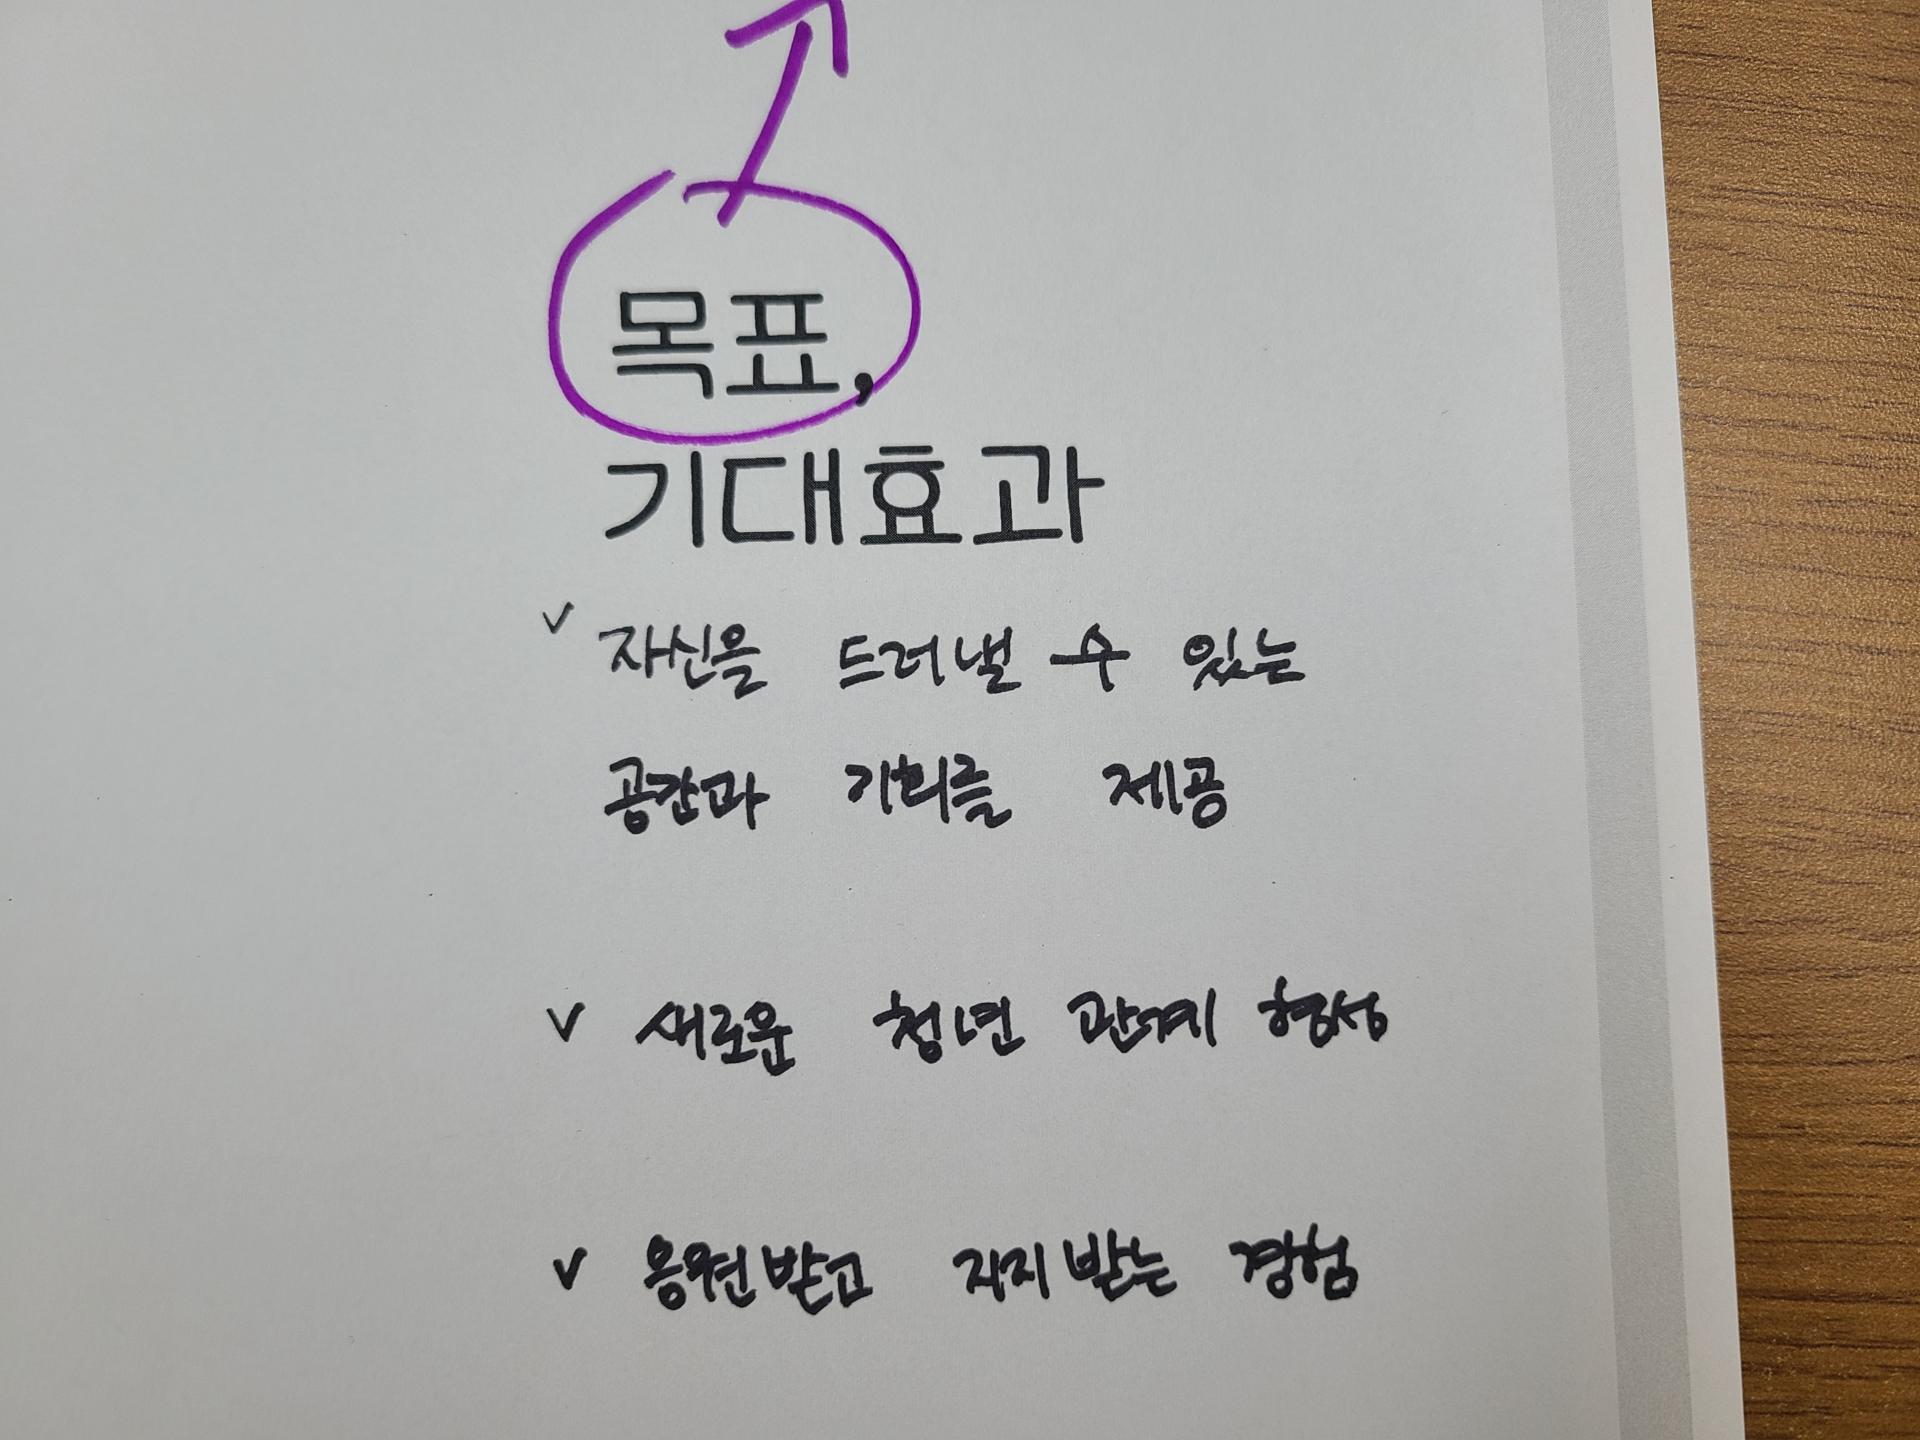 목표,
기대효과
✓ 자신을 드러낼 수 있는
공간과 기회를 제공
✓ 새로운 청년 관계 형성
✓ 응원받고 지지받는 경험